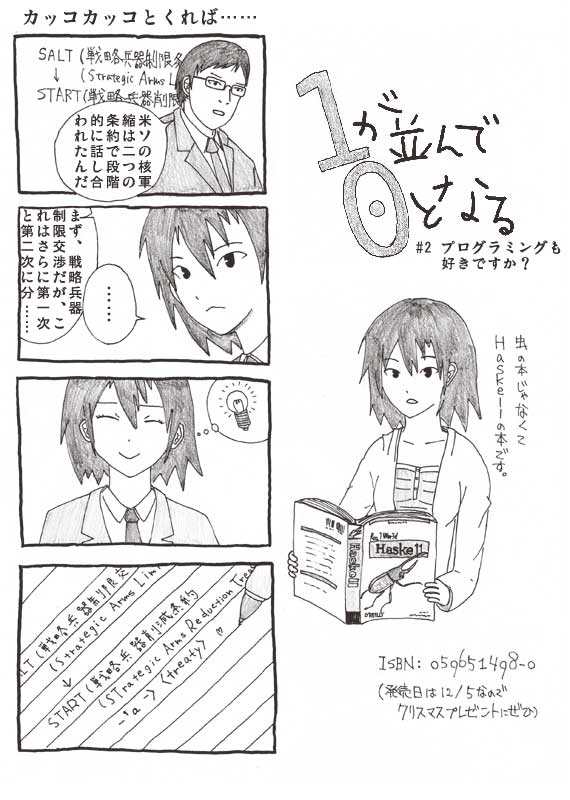 カッコカッコとくれば……
SALT (戦略兵器制限条
(Strategic Arms Li
↓
START(戦略兵器削減
米ソの核軍
縮は二つの
条約で段階
的に話し合
われたんだ
まず、戦略兵器
制限交渉だが、こ
れはさらに第一次
と第二次に分……
……
ALT (戦略兵器制限交
(Strategic Arms Lim
↓
START (戦略兵器削減条約
(STrategic Arms Reduction Treat
-'a -> (treaty> ♡
1が並んで
0となる
#2 プログラミングも
好きですか?
虫の本じゃなくて
Haskellの本です。
Real World
Haskell
Haskell
O'REILLY
ISBN: 059651498-0
(発売日は12/5なので
クリスマスプレゼントにぜひ)